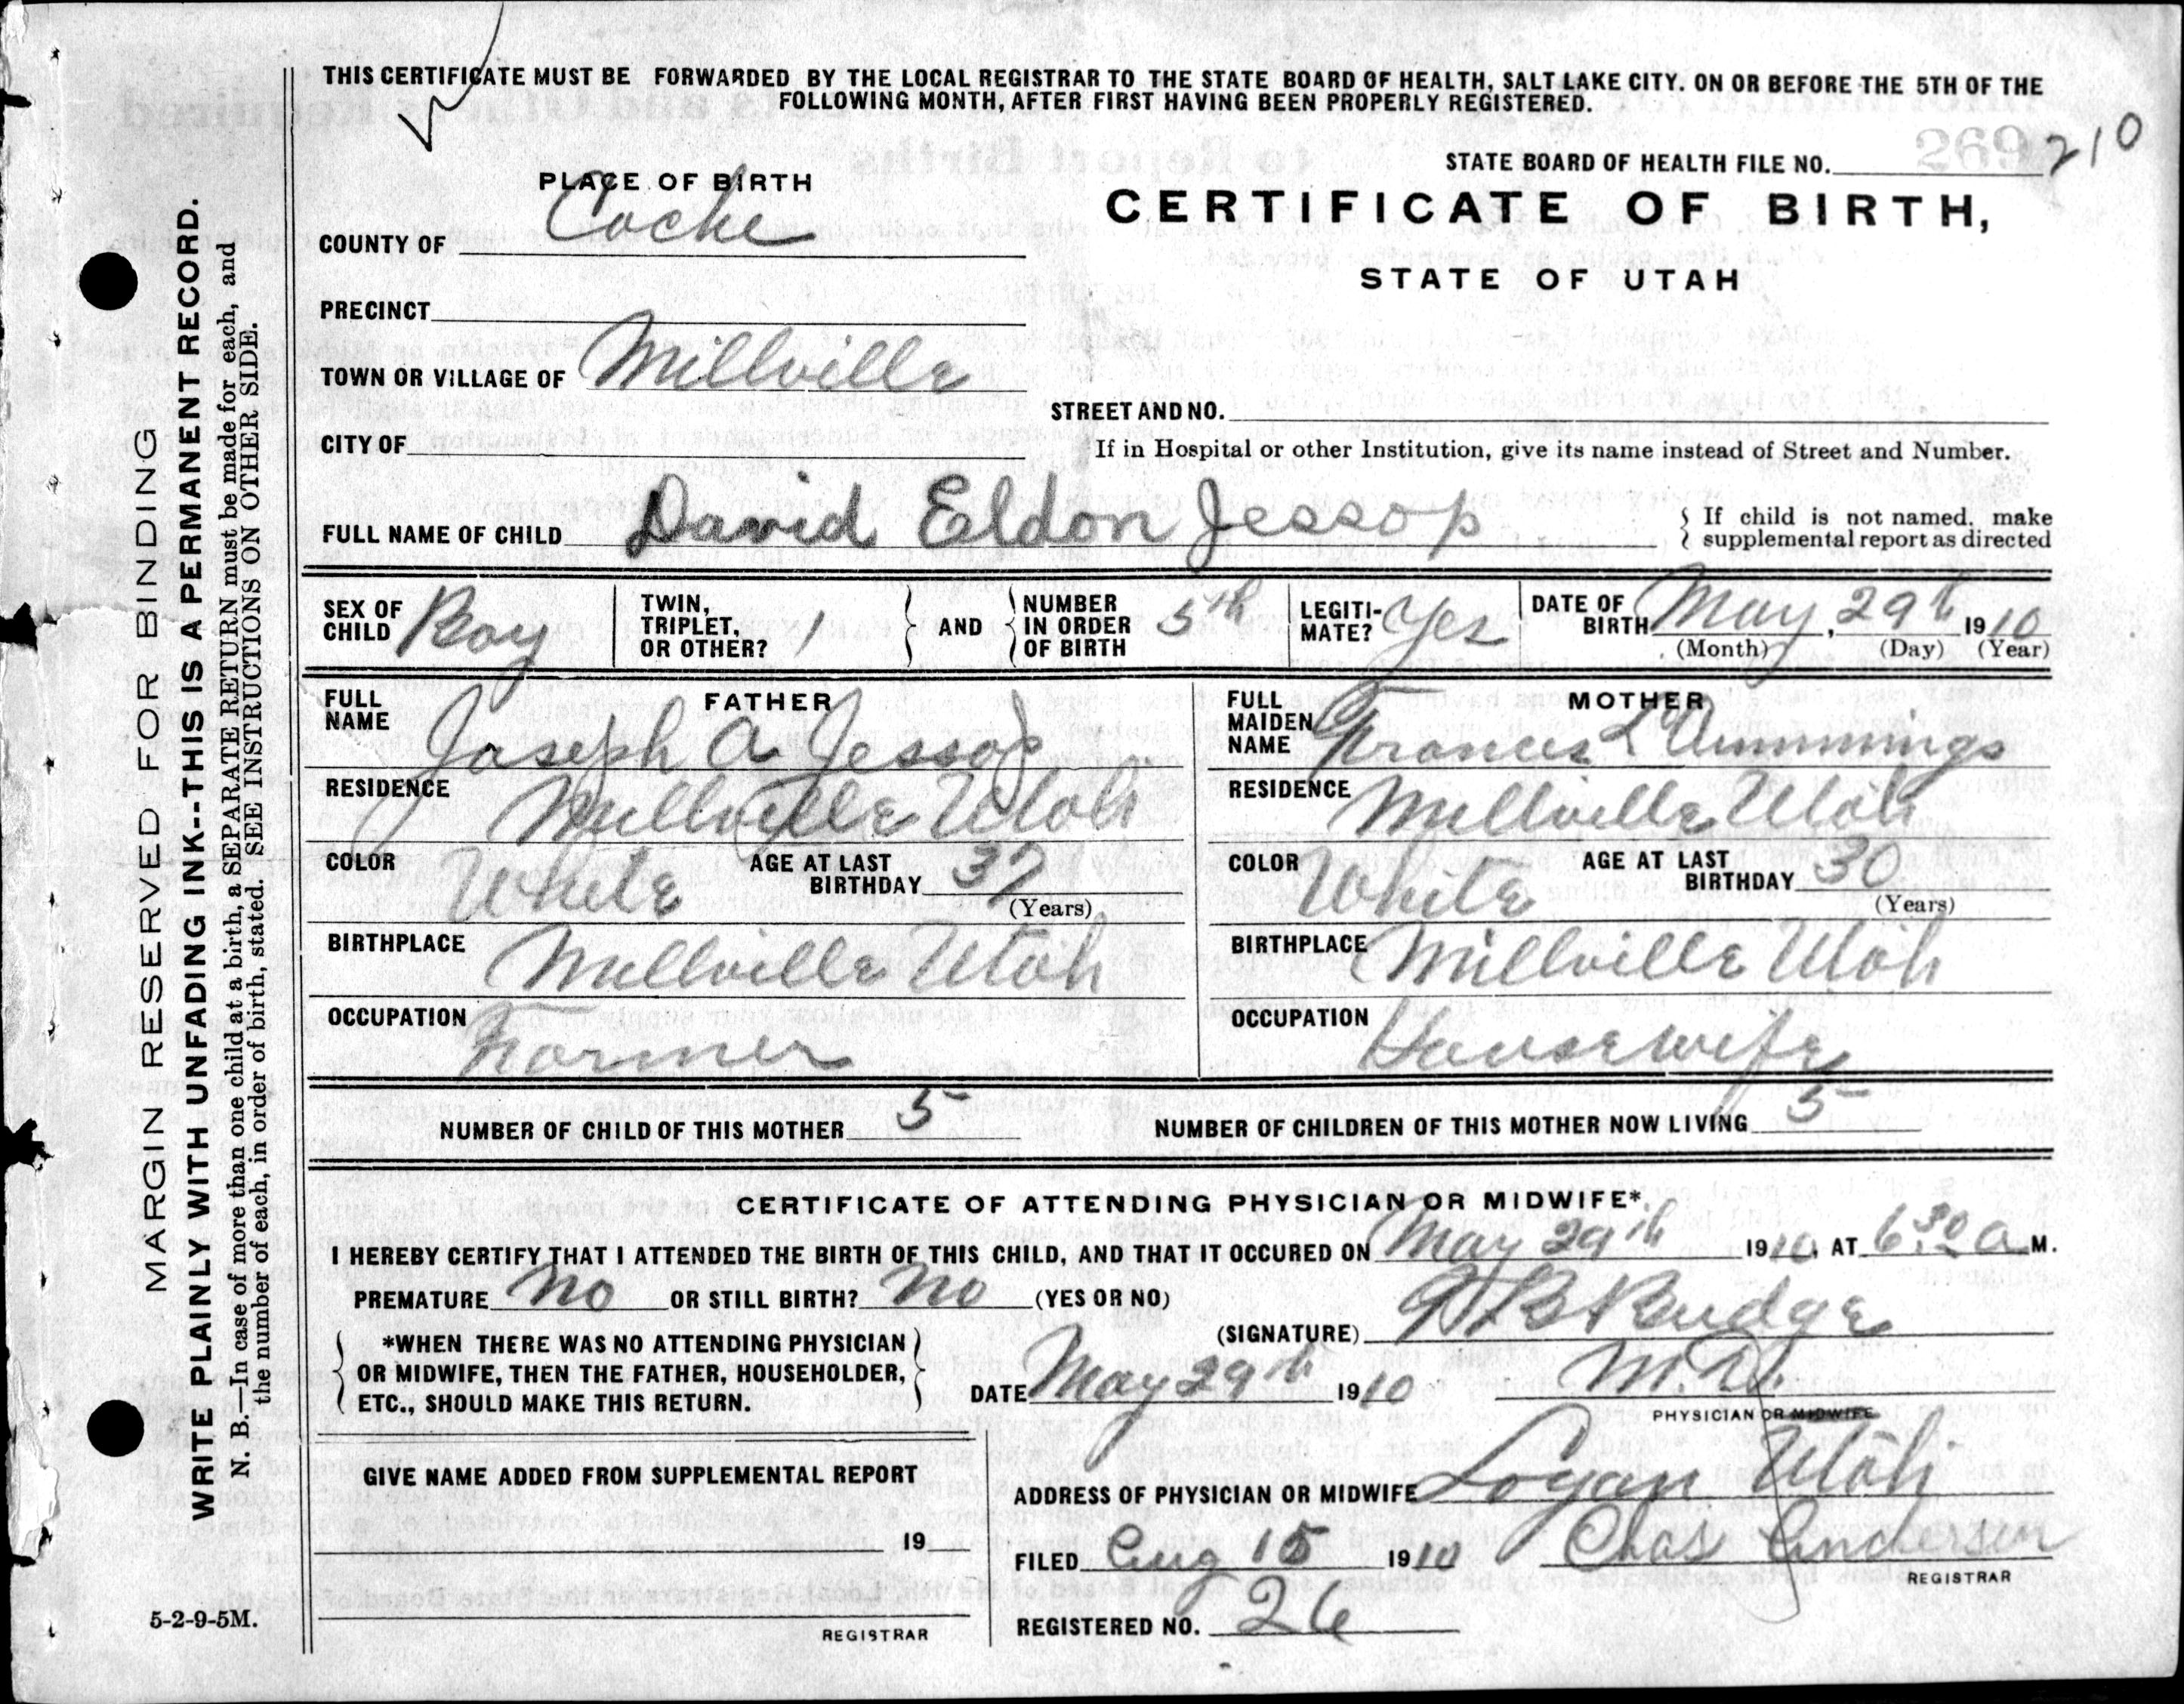 THIS CERTIFICATE MUST BE FORWARDED BY THE LOCAL REGISTRAR TO THE STATE BOARD OF HEALTH, SALT LAKE CITY. ON OR BEFORE THE 5TH OF THE
FOLLOWING MONTH, AFTER FIRST HAVING BEEN PROPERLY REGISTERED.
STATE BOARD OF HEALTH FILE NO. 269 210
PLACE OF BIRTH
CERTIFICATE OF BIRTH,
STATE OF UTAH
COUNTY OF Cache
PRECINCT
TOWN OR VILLAGE OF Millville
STREET AND NO.
CITY OF
If in Hospital or other Institution, give its name instead of Street and Number.
FULL NAME OF CHILD David Eldon Jessop
If child is not named, make
supplemental report as directed
SEX OF CHILD Boy
TWIN, TRIPLET, OR OTHER? 1
AND
NUMBER IN ORDER OF BIRTH 5th
LEGITI-MATE? Yes
DATE OF BIRTH May, 29th 1910
(Month) (Day) (Year)
FATHER
FULL NAME Joseph A Jessop
RESIDENCE Millville Utah
COLOR White AGE AT LAST BIRTHDAY 37
(Years)
BIRTHPLACE Millville Utah
OCCUPATION Farmer
MOTHER
FULL MAIDEN NAME Frances L Cummings
RESIDENCE Millville Utah
COLOR White AGE AT LAST BIRTHDAY 30
(Years)
BIRTHPLACE Millville Utah
OCCUPATION Housewife
NUMBER OF CHILD OF THIS MOTHER 5 NUMBER OF CHILDREN OF THIS MOTHER NOW LIVING 5
CERTIFICATE OF ATTENDING PHYSICIAN OR MIDWIFE*
I HEREBY CERTIFY THAT I ATTENDED THE BIRTH OF THIS CHILD, AND THAT IT OCCURED ON May 29th 1910, AT 6:30 a M.
PREMATURE no OR STILL BIRTH? no (YES OR NO)
*WHEN THERE WAS NO ATTENDING PHYSICIAN
OR MIDWIFE, THEN THE FATHER, HOUSEHOLDER,
ETC., SHOULD MAKE THIS RETURN.
(SIGNATURE) D B Budge
DATE May 29th 1910 M.D.
PHYSICIAN OR MIDWIFE
GIVE NAME ADDED FROM SUPPLEMENTAL REPORT
19
REGISTRAR
ADDRESS OF PHYSICIAN OR MIDWIFE Logan Utah
FILED Aug 15 1910 Chas Andersen
REGISTRAR
REGISTERED NO. 26
MARGIN RESERVED FOR BINDING
WRITE PLAINLY WITH UNFADING INK--THIS IS A PERMANENT RECORD.
N. B.—In case of more than one child at a birth, a SEPARATE RETURN must be made for each, and
the number of each, in order of birth, stated. SEE INSTRUCTIONS ON OTHER SIDE.
5-2-9-5M.